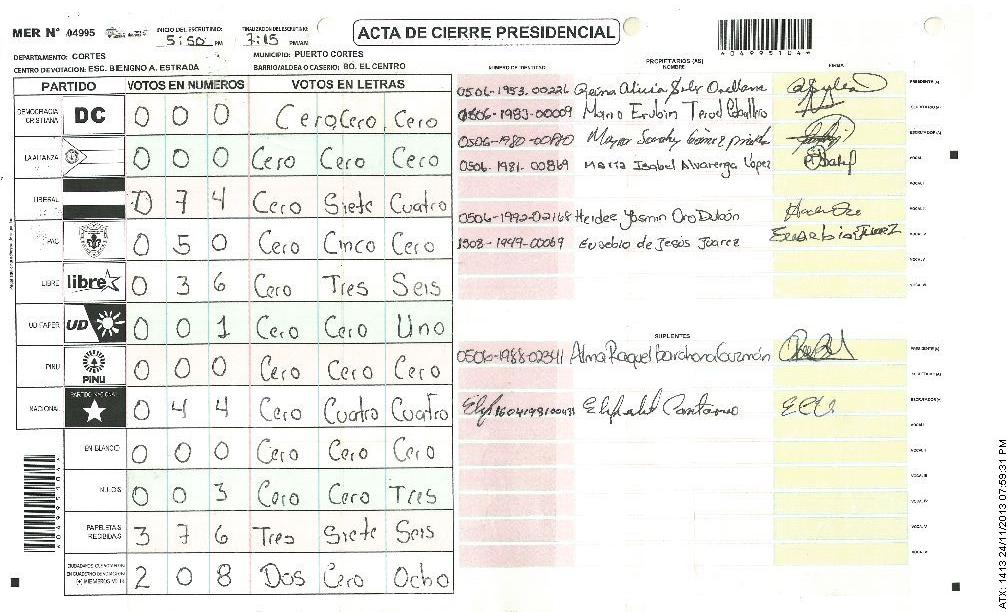 MER Nº 04995
INICIO DEL ESCRUTINIO: 5:50 PM
FINALIZACION DEL ESCRUTINIO: 7:15 PM/AM
ACTA DE CIERRE PRESIDENCIAL
4049951044
DEPARTAMENTO: CORTES
MUNICIPIO: PUERTO CORTES
CENTRO DE VOTACION: ESC. BIENGNO A. ESTRADA
BARRIO/ALDEA O CASERIO: BO. EL CENTRO
PARTIDO VOTOS EN NUMEROS VOTOS EN LETRAS
DEMOCRACIA CRISTIANA DC 0 0 0 Cero Cero Cero
LA ALIANZA 0 0 0 Cero Cero Cero
LIBERAL 0 7 4 Cero Siete Cuatro
PAC 0 5 0 Cero Cinco Cero
LIBRE libre 0 3 6 Cero Tres Seis
UD FAPER UD 0 0 1 Cero Cero Uno
PINU PINU 0 0 0 Cero Cero Cero
NACIONAL PARTIDO NACIONAL 0 4 4 Cero Cuatro Cuatro
EN BLANCO 0 0 0 Cero Cero Cero
NULOS 0 0 3 Cero Cero Tres
PAPELETAS RECIBIDAS 3 7 6 Tres Siete Seis
2 0 8 Dos Cero Ocho
NUMERO DE IDENTIDAD
PROPIETARIOS (AS)
NOMBRE
FIRMA
0506-1953-00226 Reina Alicia Orellana PRESIDENTE (A)
0506-1983-00009 Mario
0506-1980-00780 Gómez ESCRUTADOR (A)
0506-1981-00869 Maria Isabel Alvarenga Lopez VOCAL
0506-1992-02168 Heidee Yasmin Oro
1508-1949-00069 Eusebio de Jesús Juarez Eusebio Juarez
SUPLENTES
0506-1988-02341 Alma Raquel Barahona Guzmán PRESIDENTE (A)
ESCRUTADOR (A)
ATX: 1413 24/11/2013 07:59:31 PM